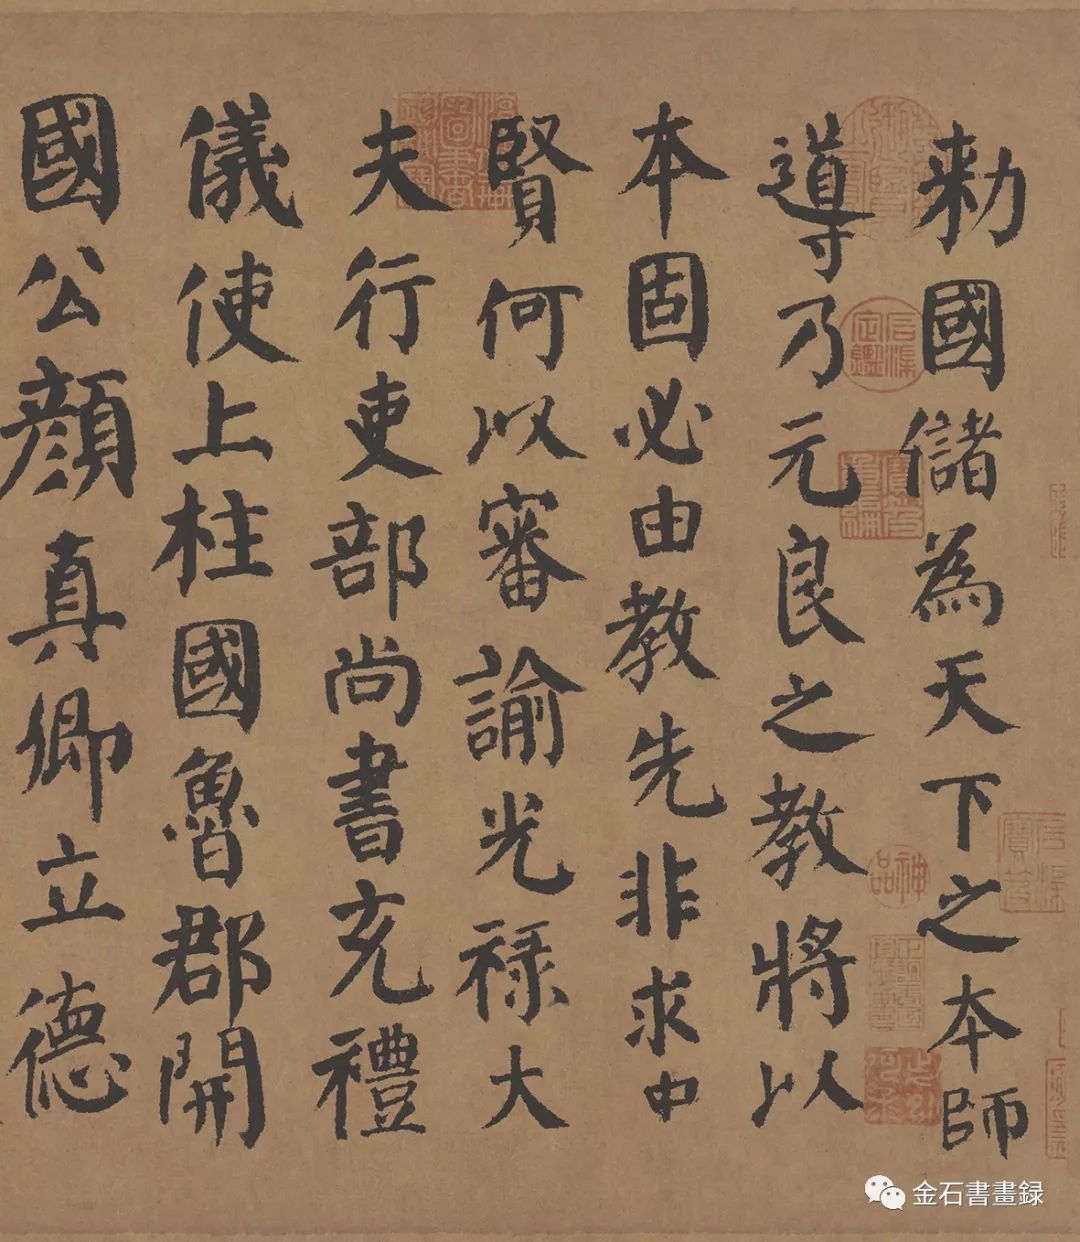 勅國儲為天下之本師
導乃元良之教將以
本固必由教先非求中
賢何以審諭光祿大
夫行吏部尚書充禮
儀使上柱國魯郡開
國公顏真卿立德
神品
金石書畫録